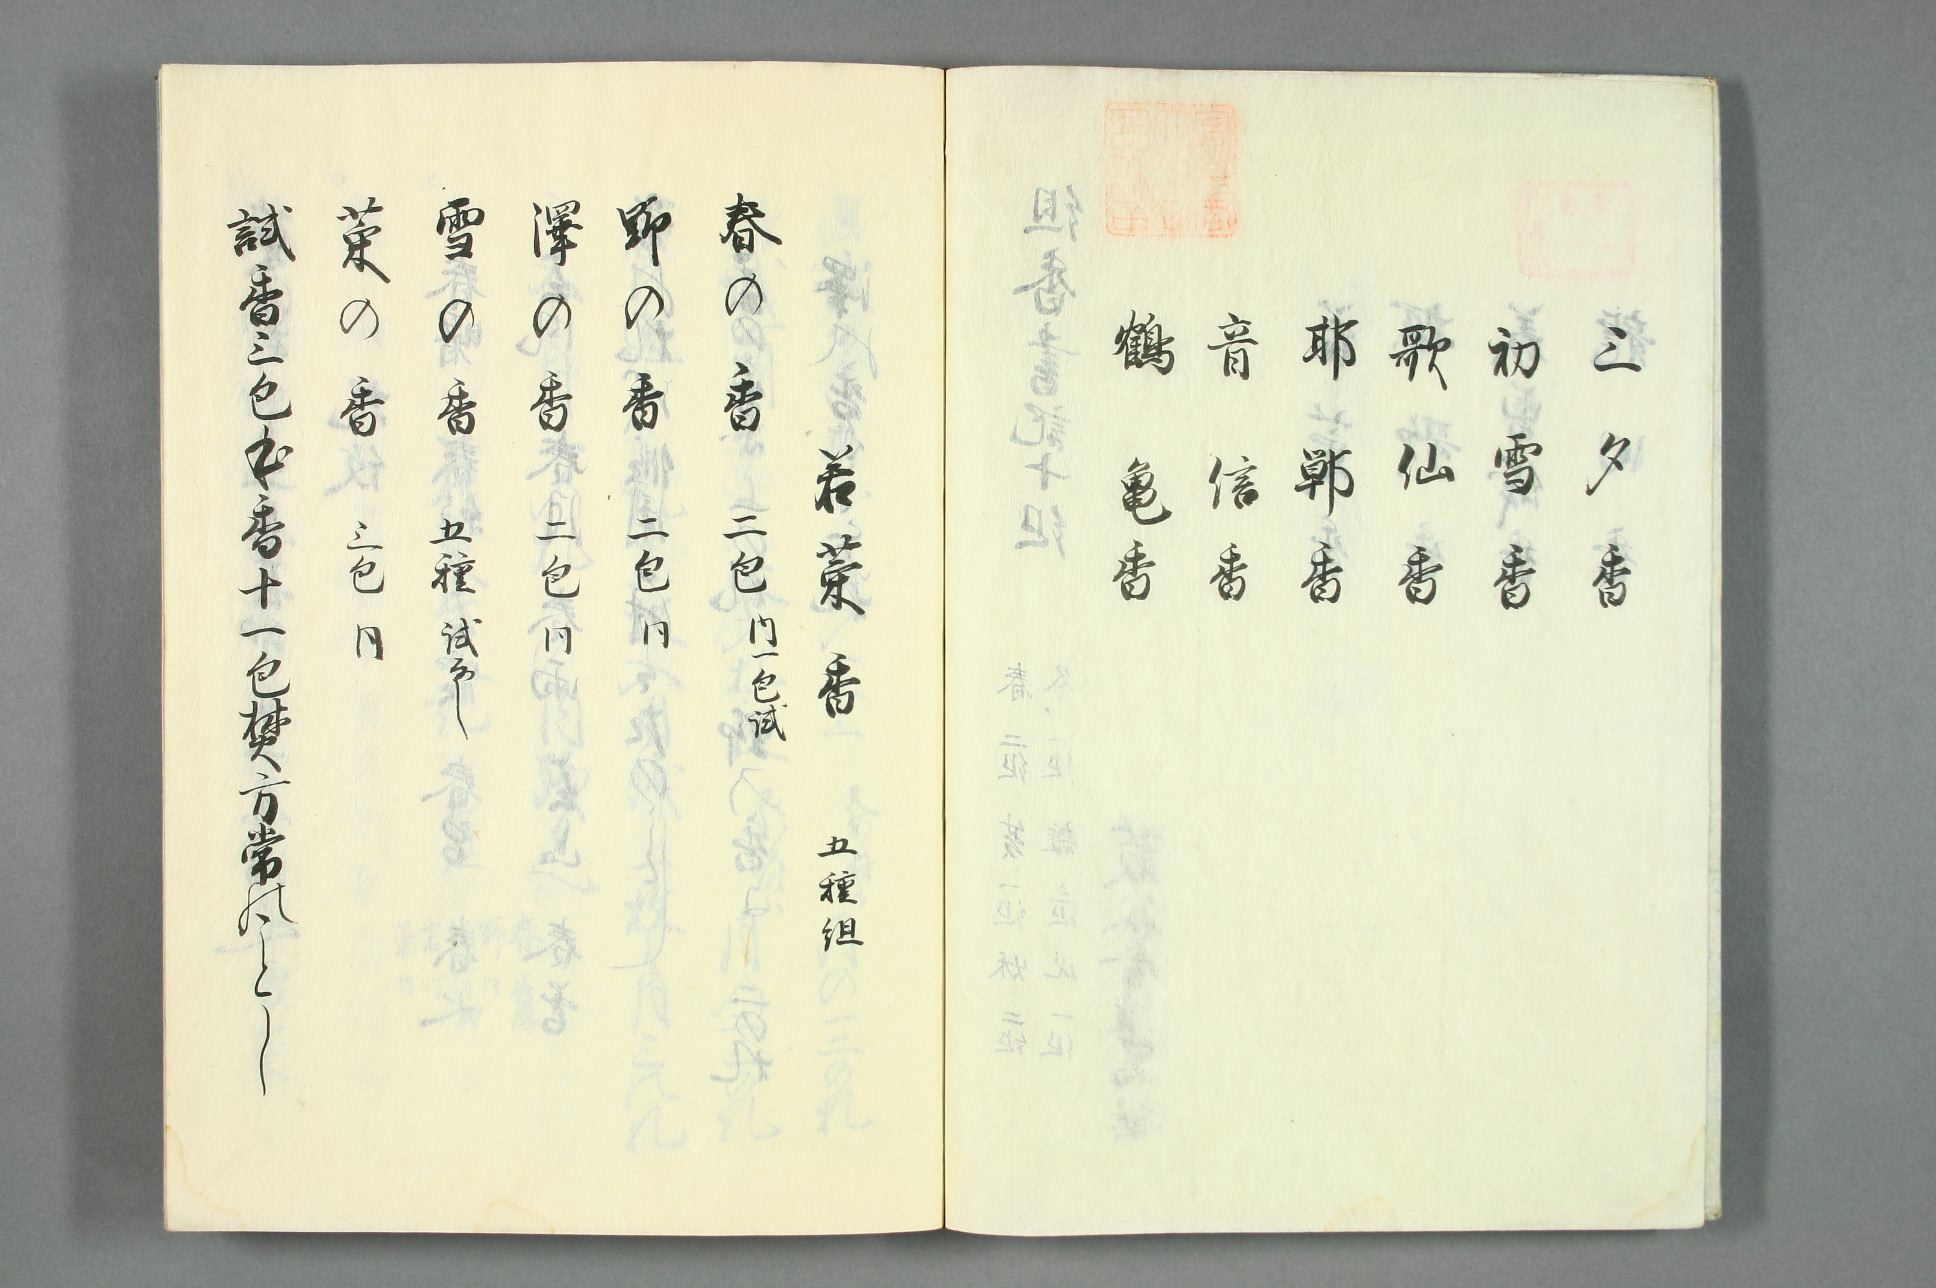 三夕香
初雪香
歌仙香
邯鄲香
音信香
鶴亀香
若菜香 五種組
春の香 二包 内一包試
野の香 二包 同
澤の香 二包 同
雪の香 五種 試なし
菜の香 三包 同
試香三包本香十一包焚方常のことし